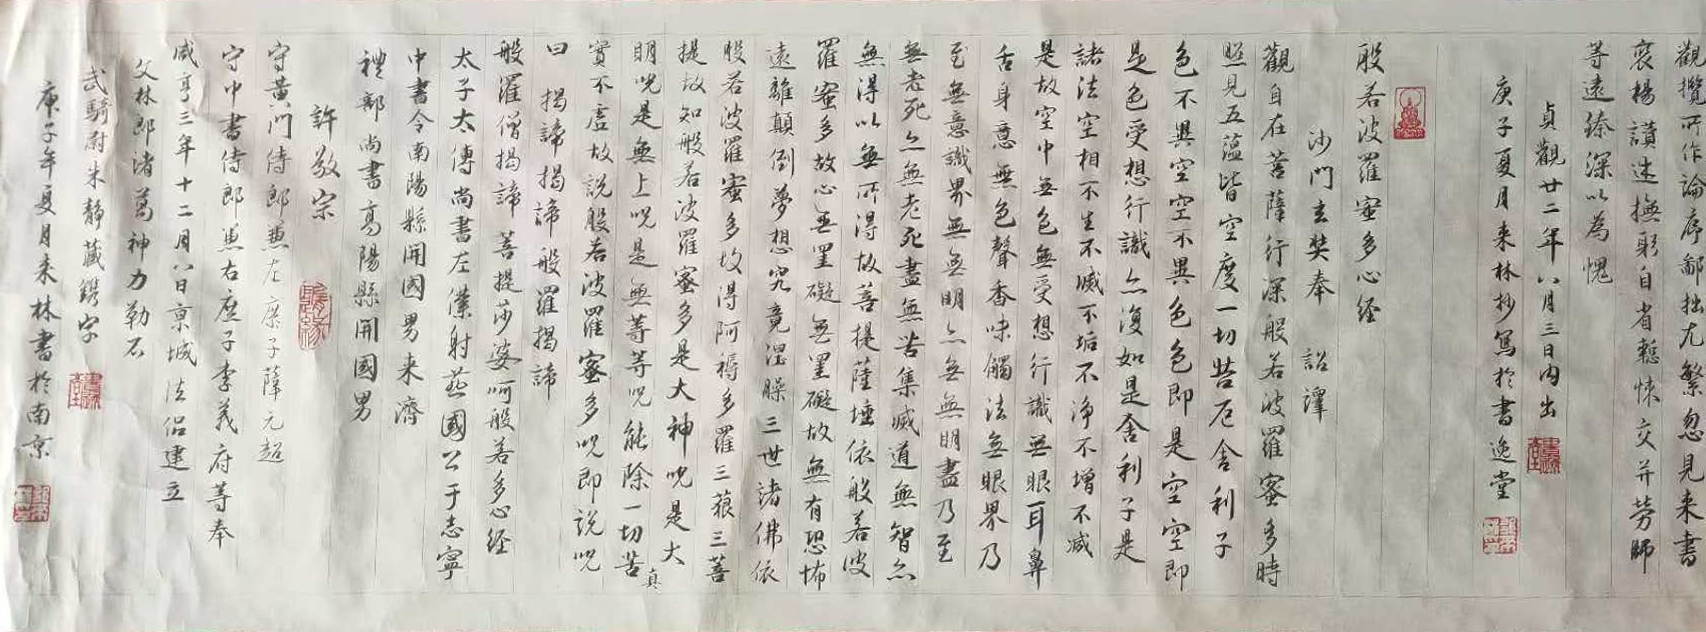 觀攬所作論序鄙拙尤繁忽見來書
褒揚讚述撫躬自省慙悚交并勞師
等遠臻深以為愧
貞觀廿二年八月三日內出
庚子夏月来林抄寫於書逸堂
般若波羅蜜多心经
沙門玄奘奉 詔譯
觀自在菩薩行深般若波羅蜜多時
照見五蕴皆空度一切苦厄舍利子
色不異空空不異色色即是空空即
是色受想行識亦復如是舍利子是
諸法空相不生不滅不垢不净不增不减
是故空中無色無受想行識無眼耳鼻
舌身意無色聲香味觸法無眼界乃
至無意識界無無明亦無無明盡乃至
無老死亦無老死盡無苦集滅道無智亦
無得以無所得故菩提薩埵依般若波
羅蜜多故心無罣礙無罣礙故無有恐怖
遠離顛倒夢想究竟涅槃三世諸佛依
般若波羅蜜多故得阿耨多羅三藐三菩
提故知般若波羅蜜多是大神咒是大
明咒是無上咒是無等等咒能除一切苦真
實不虛故說般若波羅蜜多咒即說咒
曰 揭諦揭諦般羅揭諦
般羅僧揭諦菩提莎婆呵般若多心经
太子太傅尚書左僕射燕國公于志寧
中書令南陽縣開國男来濟
禮部尚書高陽縣開國男
許敬宗
守黄門侍郎兼左庶子薛元超
守中書侍郎兼右庶子李義府等奉
咸亨三年十二月八日京城法侣建立
文林郎诸葛神力勒石
武騎尉朱静藏鐫字
庚子年夏月来林書於南京